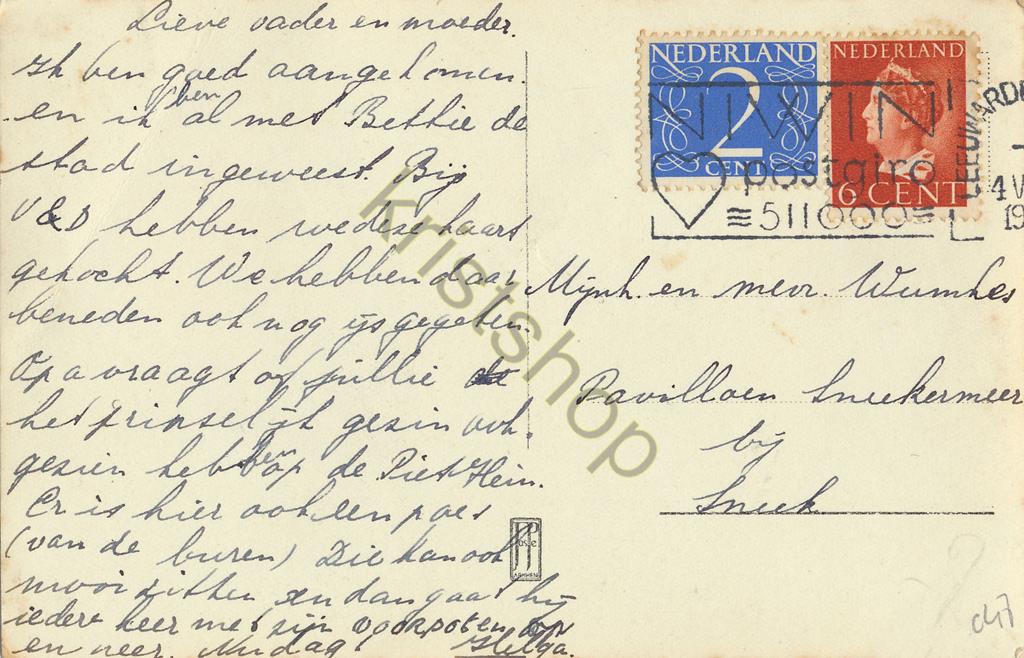 Lieve vader en moeder.
Ik ben goed aangekomen
en ik ben al met Bettie de
stad ingeweest. Bij
V&D hebben we deze kaart
gekocht. We hebben daar
beneden ook nog ijs gegeten.
Opa vraagt of jullie
het prinselijk gezin ook
gezien hebben op de Piet Hein.
Er is hier ook een poes
(van de buren) Die kan ook
mooi zitten en dan gaat hij
iedere keer met zijn voorpoten op
en neer. Nu dag Helga.
NEDERLAND
2
CENT
NEDERLAND
6 CENT
NIWIN
postgiro
≡511000≡
LEEUWARD
4 V
19
Mijnh. en mevr. Wumkes
Pavilloen Sneekermeer
bij
Sneek
JP
ARNHEM
d47
kristshop